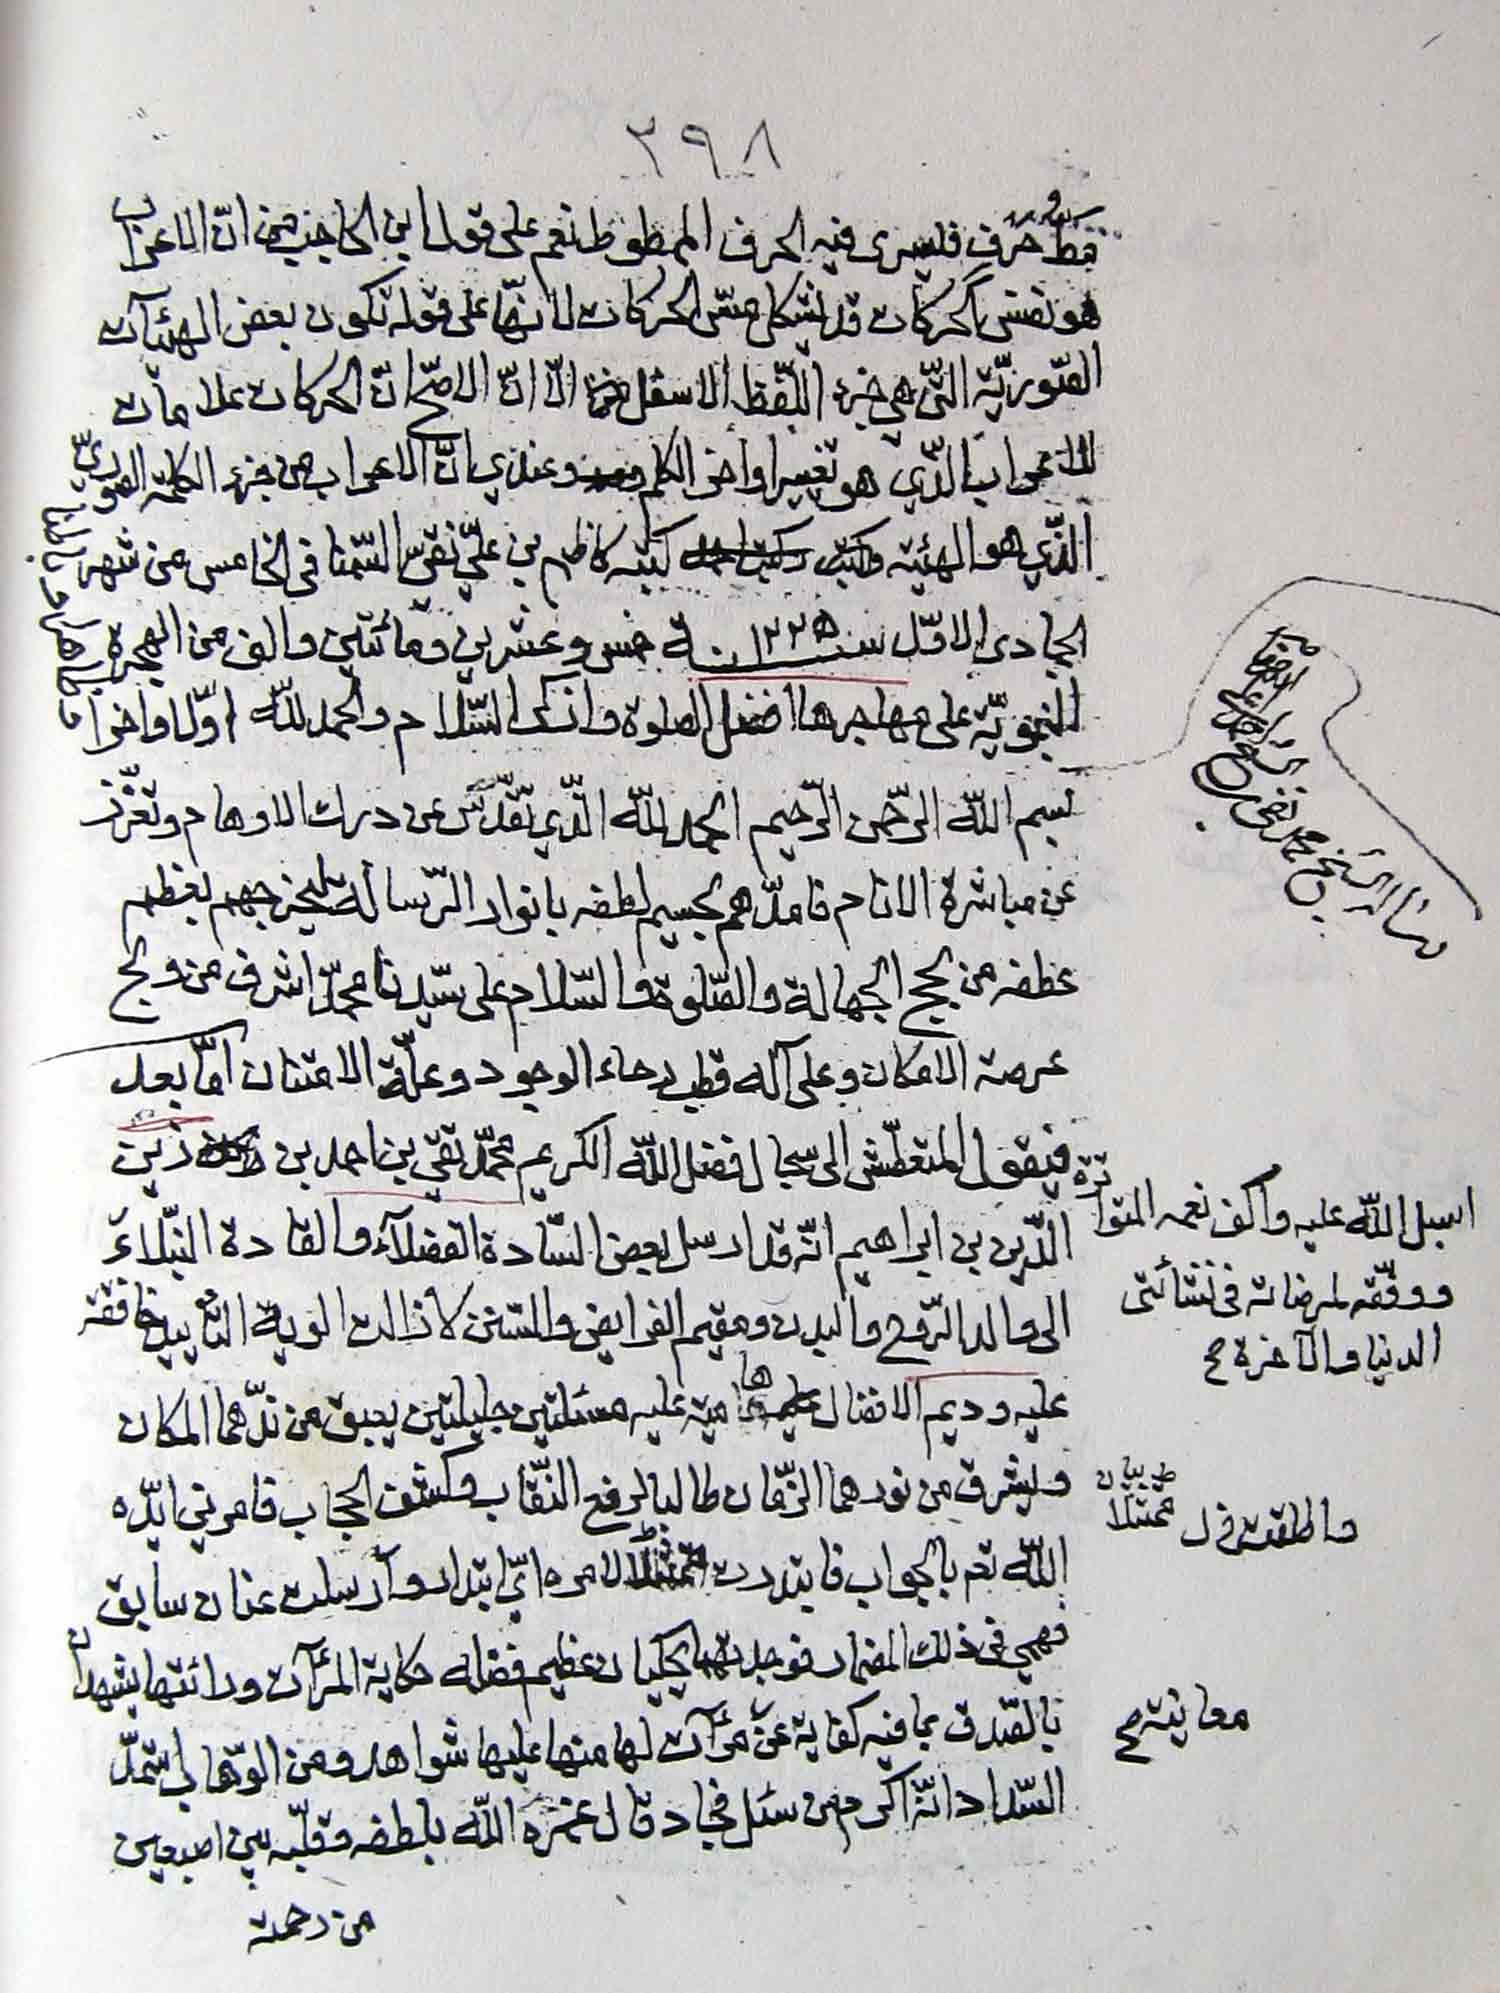 ٣٩٨
حرف فليسرى فيه الحرف الممطوط نعم على قول ابن الحاجب من انّ الاعراب
هو نفس الحركات قد يشكل متى الحركات لانّها على قوله تكون بعض الهيئات
الصّوريّة الّتي هي جزء اللّفظ الاسفل الّا انّ الاصحّ انّ الحركات علامات
للاعراب الّذي هو تغيير اواخر الكلم وعندي انّ الاعراب من جزء الكلمة الصوريّ
الّذي هو الهيئة كتبه كاظم بن عليّ نقيّ السّمنا في الخامس من شهر
الجمادى الاوّل سنة ١٢٢٥ خمس وعشرين ومائتين والف من الهجرة
النبويّة على مهاجرها افضل الصلوة وازكى السّلام والحمد للّه اوّلا واخرا
بسم اللّه الرّحمن الرّحيم الحمد للّه الّذي تقدّس عن درك الاوهام وتعزّز
عن مباشرة الانام فامدّهم بجسيم لطفه بانوار الرّسالة ليخرجهم بعظيم
عطفه من لجج الجهالة والصّلوة والسّلام على سيّدنا محمّد اشرف من ولج
عرصة الامكان وعلى آله قطب رحاء الوجود وعلّة الامتنان امّا بعد
فيقول المتعطّش الى سجال فضل اللّه الكريم محمّد تقي بن احمد بن زين
الدّين بن ابراهيم انّه قد ارسل بعض السّادة الفضلآء والقادة النّبلآء
الى والد الرّوح والبدن ومقيم الفرايض والسّنن لا زالت الوية التأييد خافقة
عليه وديم الافضال هامية عليه مسئلتين جليلتين يعبق من ندّهما المكان
ويشرق من نورهما الزّمان طالبا لرفع النّقاب وكشف الحجاب فامرني ايّده
اللّه تعم بالجواب فابتدرت لامره ايّ ابتدار وارسلت عنان سابق
فهمي في ذلك المضمار فوجدتها عظيم فضله حكاية المرآت ورائتها يشهدان
بالصّدق بما فيه كفاية عن مرآت لها منها عليها شواهد ومن الوهّاب استمدّ
السّداد انّه اكرم من سئل فجاد قال غمره اللّه بلطفه وقلّبه بين اصبعين
من رحمة
رسالة الشيخ محمد تقي بن الشيخ احمد
اسبل اللّه عليه واكف نعمه المتواترة
ووفّقه لمرضاته في نشائتى
الدنيا والآخرة صح
واطلقت
معاينة صح